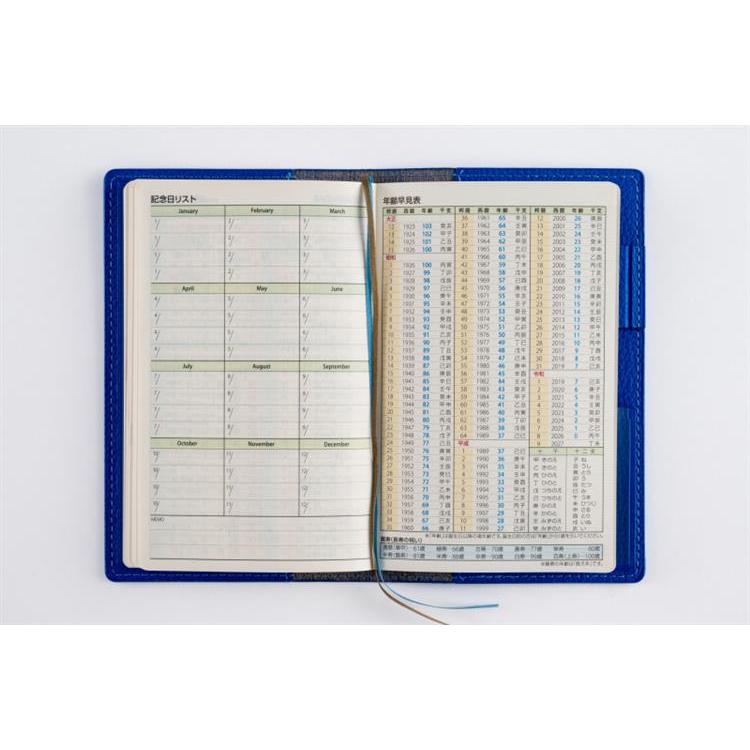 記念日リスト
January February March
1/ 1/ 1/
2/ 2/ 3/
April May June
4/ 5/ 6/
July August September
7/ 8/ 9/
October November December
10/ 11/ 12/
MEMO
年齢早見表
邦暦 西暦 年齢 干支
大正
12 1923 103 癸亥
13 1924 102 甲子
14 1925 101 乙丑
15 1926 100 丙寅
昭和
1 1926 100 丙寅
2 1927 99 丁卯
3 1928 98 戊辰
4 1929 97 己巳
5 1930 96 庚午
6 1931 95 辛未
7 1932 94 壬申
8 1933 93 癸酉
9 1934 92 甲戌
10 1935 91 乙亥
11 1936 90 丙子
12 1937 89 丁丑
13 1938 88 戊寅
14 1939 87 己卯
15 1940 86 庚辰
16 1941 85 辛巳
17 1942 84 壬午
18 1943 83 癸未
19 1944 82 甲申
20 1945 81 乙酉
21 1946 80 丙戌
22 1947 79 丁亥
23 1948 78 戊子
24 1949 77 己丑
25 1950 76 庚寅
26 1951 75 辛卯
27 1952 74 壬辰
28 1953 73 癸巳
29 1954 72 甲午
30 1955 71 乙未
31 1956 70 丙申
32 1957 69 丁酉
33 1958 68 戊戌
34 1959 67 己亥
35 1960 66 庚子
邦暦 西暦 年齢 干支
36 1961 65 辛丑
37 1962 64 壬寅
38 1963 63 癸卯
39 1964 62 甲辰
40 1965 61 乙巳
41 1966 60 丙午
42 1967 59 丁未
43 1968 58 戊申
44 1969 57 己酉
45 1970 56 庚戌
46 1971 55 辛亥
47 1972 54 壬子
48 1973 53 癸丑
49 1974 52 甲寅
50 1975 51 乙卯
51 1976 50 丙辰
52 1977 49 丁巳
53 1978 48 戊午
54 1979 47 己未
55 1980 46 庚申
56 1981 45 辛酉
57 1982 44 壬戌
58 1983 43 癸亥
59 1984 42 甲子
60 1985 41 乙丑
61 1986 40 丙寅
62 1987 39 丁卯
63 1988 38 戊辰
64 1989 37 己巳
平成
1 1989 37 己巳
2 1990 36 庚午
3 1991 35 辛未
4 1992 34 壬申
5 1993 33 癸酉
6 1994 32 甲戌
7 1995 31 乙亥
8 1996 30 丙子
9 1997 29 丁丑
10 1998 28 戊寅
11 1999 27 己卯
邦暦 西暦 年齢 干支
12 2000 26 庚辰
13 2001 25 辛巳
14 2002 24 壬午
15 2003 23 癸未
16 2004 22 甲申
17 2005 21 乙酉
18 2006 20 丙戌
19 2007 19 丁亥
20 2008 18 戊子
21 2009 17 己丑
22 2010 16 庚寅
23 2011 15 辛卯
24 2012 14 壬辰
25 2013 13 癸巳
26 2014 12 甲午
27 2015 11 乙未
28 2016 10 丙申
29 2017 9 丁酉
30 2018 8 戊戌
31 2019 7 己亥
令和
1 2019 7 己亥
2 2020 6 庚子
3 2021 5 辛丑
4 2022 4 壬寅
5 2023 3 癸卯
6 2024 2 甲辰
7 2025 1 乙巳
8 2026 0 丙午
9 2027 丁未
十干 十二支
甲 きのえ 子 ね
乙 きのと 丑 うし
丙 ひのえ 寅 とら
丁 ひのと 卯 う
戊 つちのえ 辰 たつ
己 つちのと 巳 み
庚 かのえ 午 うま
辛 かのと 未 ひつじ
壬 みずのえ 申 さる
癸 みずのと 酉 とり
戌 いぬ
亥 い
賀寿(長寿の祝い)
還暦(華甲)…61歳 緑寿…66歳 古希…70歳 喜寿…77歳 傘寿…80歳
半寿(盤寿)…81歳 米寿…88歳 卒寿…90歳 白寿…99歳 百寿(上寿)…100歳
※賀寿の年齢は「数え年」です。